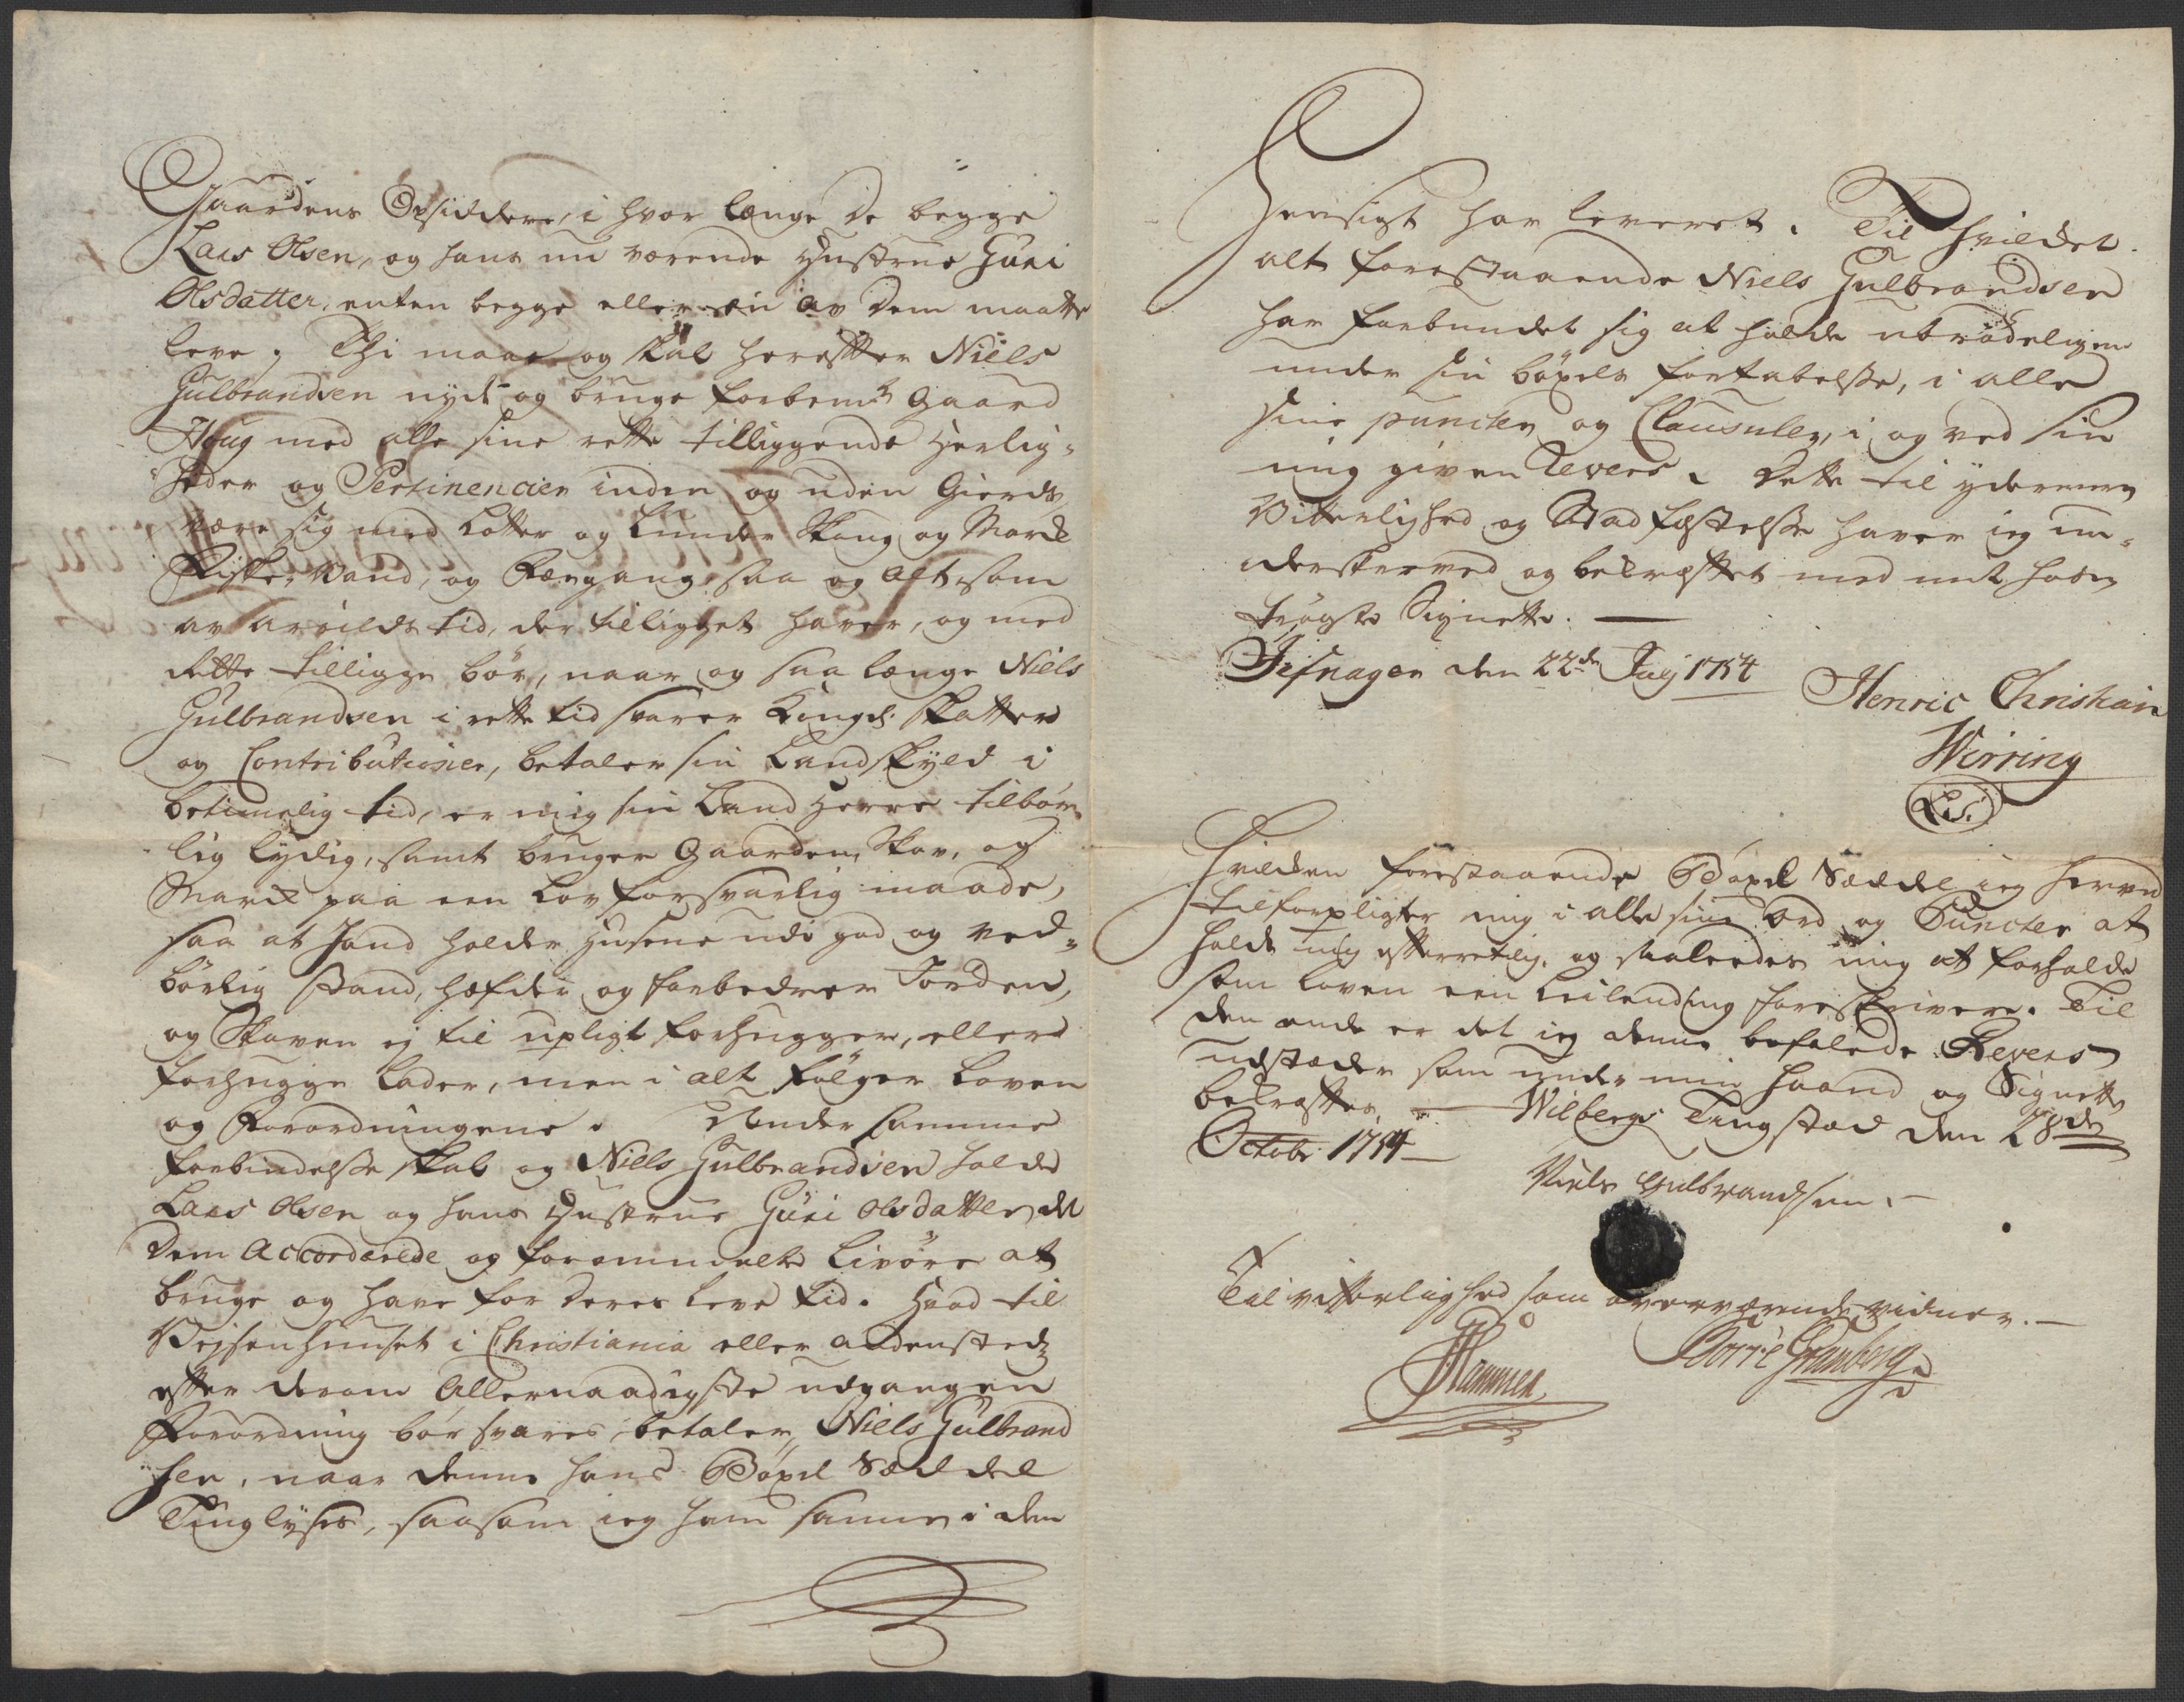 Gaardens Opsiddere, i hvor længe de begge
Lars Olsen, og hans nu værende Hustrue Guri
Olsdatter, enten begge eller een av dem maatte
leve; Thi maae og skal herefter Niels
Gulbrandsen nyde og bruge forbemte Gaard
Houg med alle sine rette tilliggende Herlig-
heder og Pertinencier inden og uden Gierds
være sig med Lotter og Lunder Skoug og Mark
Fiske-Vand, og Færgang, saa og Alt som
av Arrilds tid, der tilligget haver, og med
rette tilligge bör, naar og saa længe Niels
Gulbrandsen i rette tid svarer Kongl. Skatter
og Contributioner, betaler sin Landskyld i
betimelig tid, er mig sin Land Herre tilbör-
lig lydig, samt bruger Gaarden, Skov, og
Mark paa een Lovforsvarlig maade,
saa at hand holder Husene udi god og ved-
börlig stand, hæfder og forbedrer Jorden,
og Skoven ej til upligt forhugger, eller
forhugge lader, men i alt fölger Loven
og Forordningene. Under samme
forbindelse skal og Niels Gulbrandsen holde
Lars Olsen og hans Hustrue Guri Olsdatter det
dem Accorderede og forommelte Livöre at
bruge og have for deres leve tid. Hvad til
Vejsenhuuset i Christiania eller andensteds
efter derom Allernaadigste udgangen
Forordning bör svares, betaler Niels Gulbrand
sen, naar denne hans Böxel Seddel
Tinglyses, saasom ieg ham samme i den
Henseigt har leveret. Til hvilket
alt forestaaende Niels Gulbrandsen
har forbundet sig at holde ubrödeligen
under sin böxels fortabelse, i alle
sine puncter og Clausuler, i og ved sin
mig given Revers. Dette til ydermere
Vitterlighed og Stadfæstelse haver ieg un-
derskreved og bekræftet med mit hos-
trögte Signette. —
Jesnager den 22de Julj 1754
Henric Christian
Wirring
L.S.
Hvilken forestaaende Böxel Seddel ieg herved
tilforpligter mig i alle sine Ord og Puncter at
holde mig efterretlig, og saaledes mig at forholde
som Loven een Leilending foreskriver. Til
den ende er det ieg denne befalede Revers
udstæder som under min Haand og Signette
bekræftes. — Wilbergs Tingstæd den 28de
Octobr 1754 —
Niels Gulbrandsen. —
Til vitterlighed som overværende vidner. —
Hammer
Torre Granberg